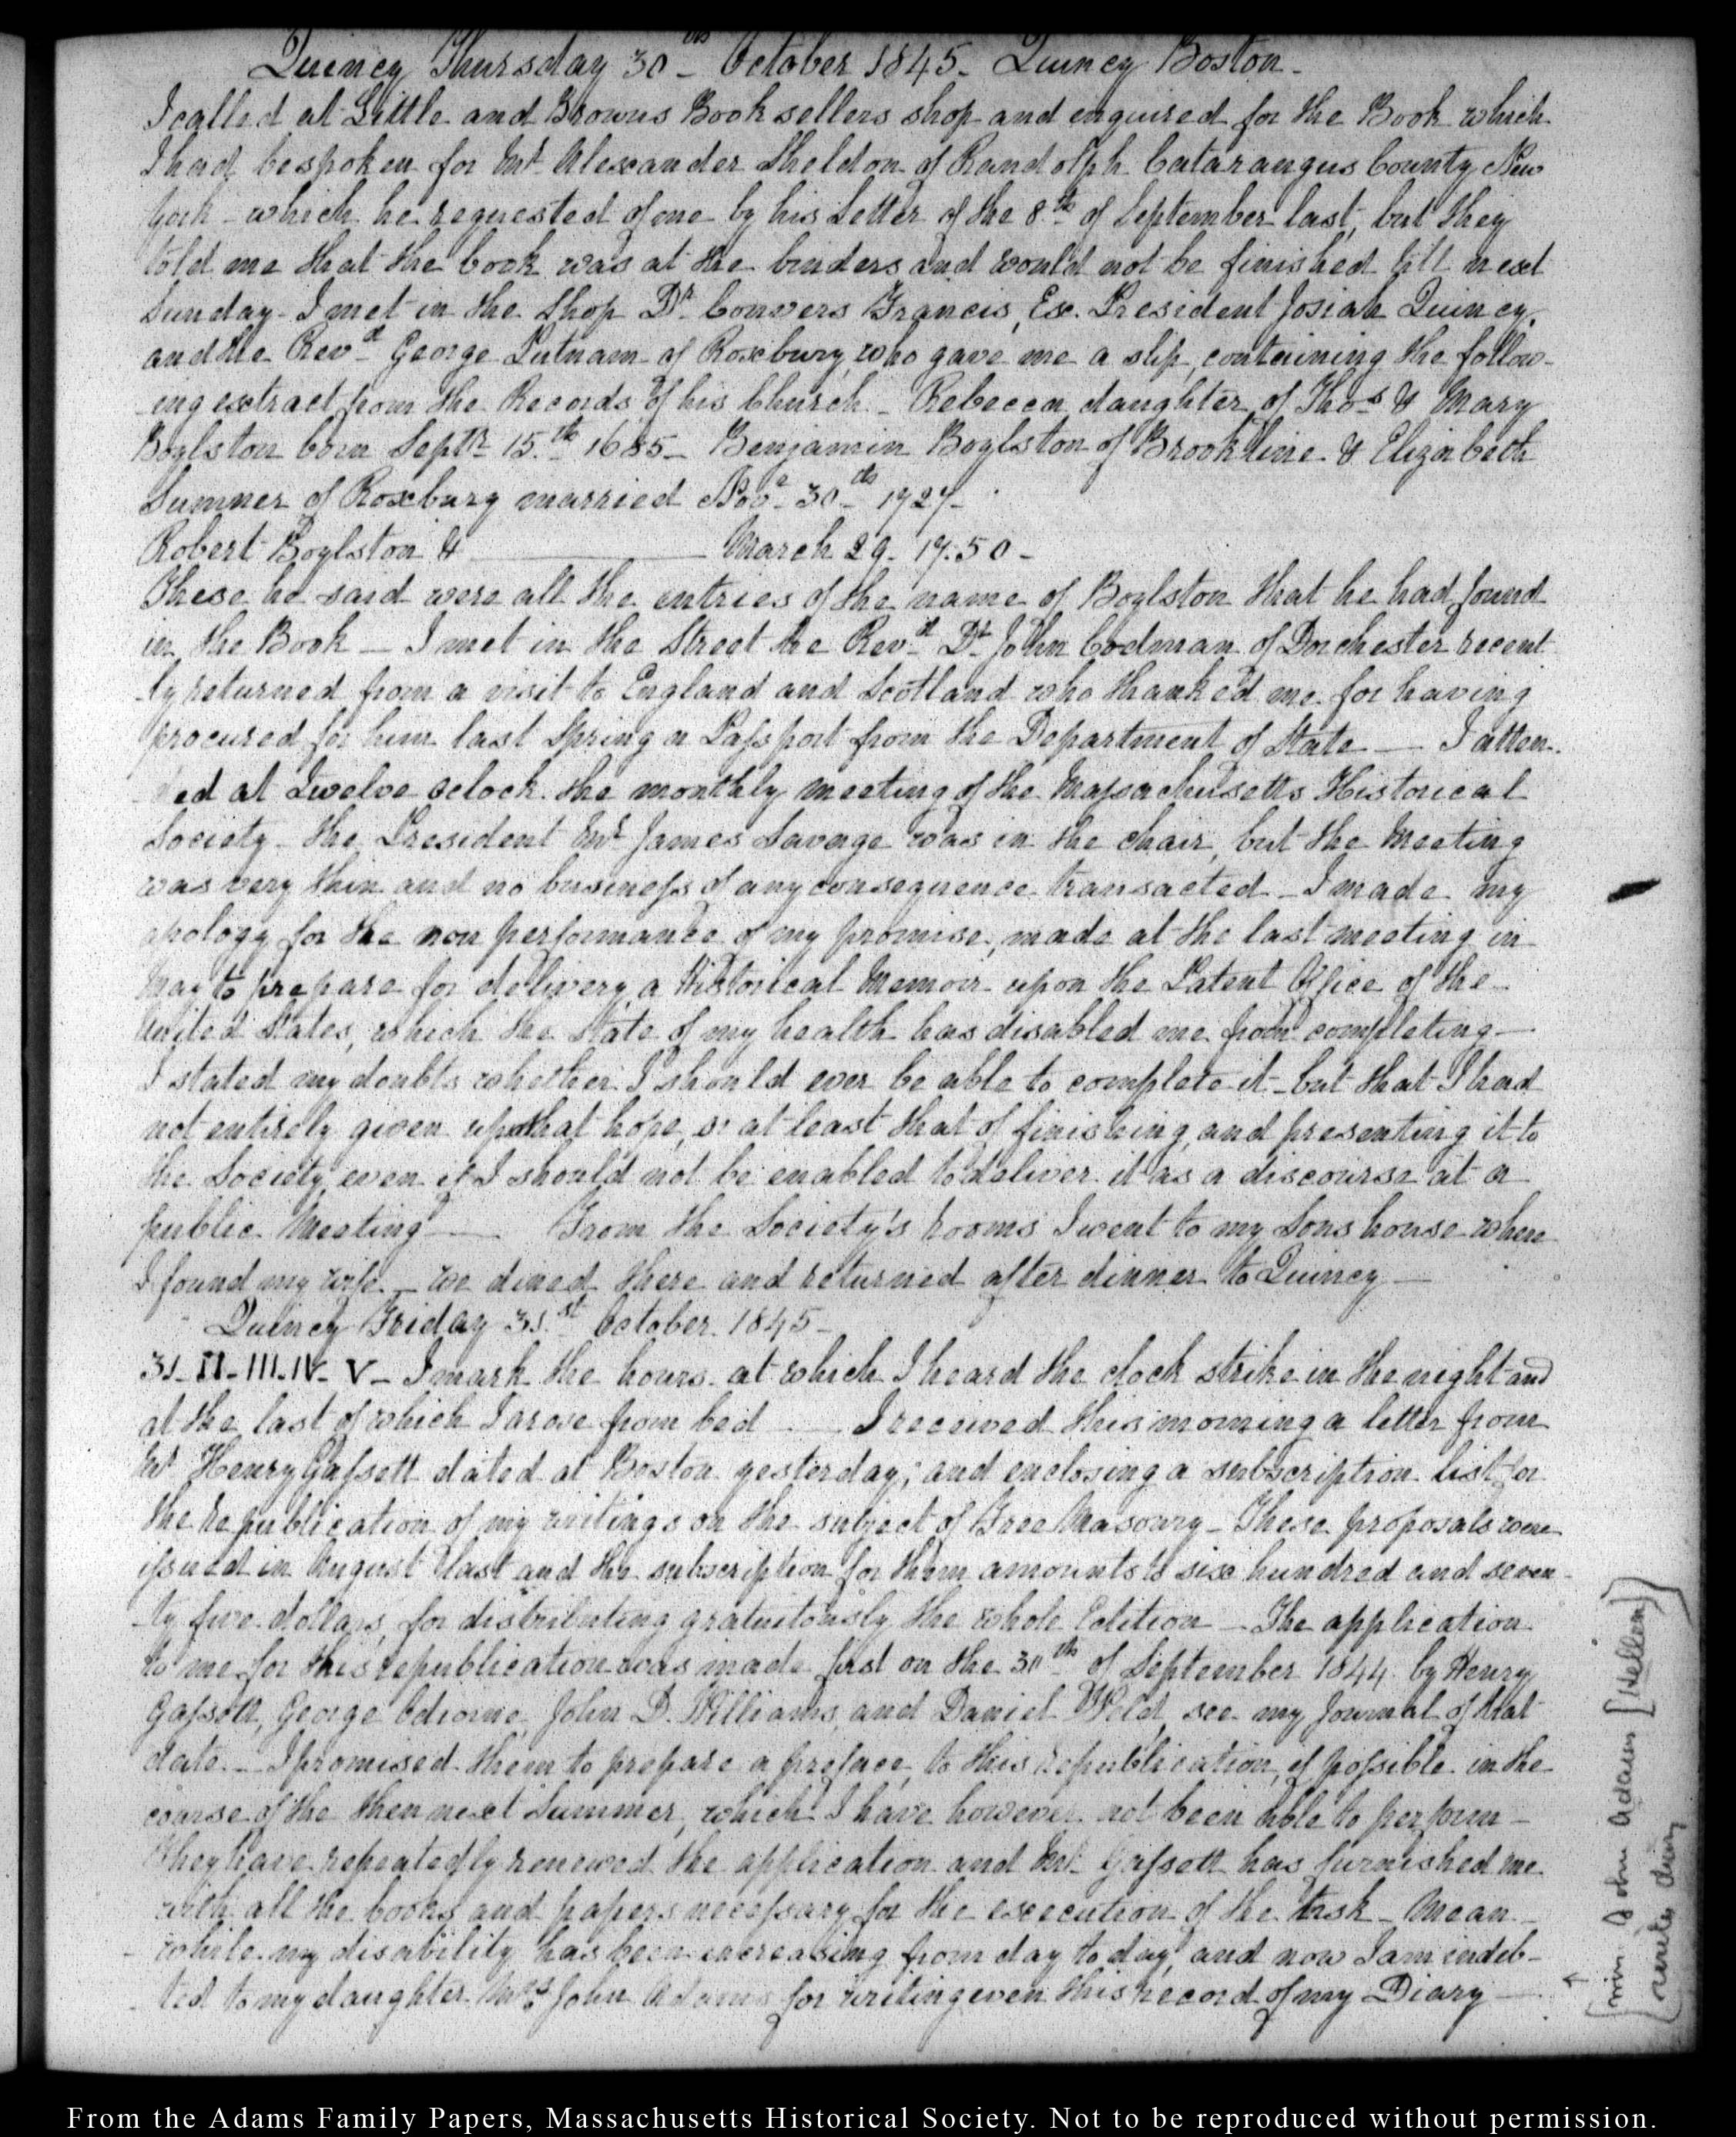 Quincy Thursday 30th October 1845. Quincy Boston.
I called at Little and Browns Booksellers shop and enquired for the Book which
I had bespoken for Mr. Alexander Sheldon of Randolph Catarangus County New
York - which he requested of me by his Letter of the 8th of September last, but they
told me that the book was at the binders and would not be finished till next
Sunday - I met in the Shop Dr. Convers Francis, Ex. President Josiah Quincy,
and the Revd. George Putnam of Roxbury, who gave me a slip, containing the follow-
-ing extract from the Records of his Church - Rebecca daughter of Thos & Mary
Boylston born Septr 15.th 1685 - Benjamin Boylston of Brookline & Elizabeth
Sumner of Roxbury married Novr 30th 1727 -
Robert Boylston & ——— March 29. 17.50 -
These he said were all the entries of the name of Boylston that he had found
in the Book — I met in the Street the Revd Dr. John Codman of Dorchester recent
-ly returned from a visit to England and Scotland who thanked me for having
procured for him last Spring a Passport from the Department of State — I atten-
-ded at Twelve oclock the monthly meeting of the Massachusetts Historical
Society - the President Mr James Savage was in the chair, but the Meeting
was very thin and no business of any consequence transacted - I made my
apology for the non performance of my promise, made at the last meeting in
May to prepare for delivery a Historical Memoir upon the Patent Office of the
United States, which the state of my health has disabled me from completing —
I stated my doubts whether I should ever be able to complete it - but that I had
not entirely given up that hope, or at least that of finishing and presenting it to
the Society even if I should not be enabled to deliver it as a discourse at a
public Meeting — From the Society's rooms I went to my Sons house where
I found my wife - we dined there and returned after dinner to Quincy —
Quincy Friday 31.st October. 1845 -
31 - II - III - IV - V - I mark the hours at which I heard the clock strike in the night and
at the last of which I arose from bed — I received this morning a letter from
Mr Henry Gassett dated at Boston yesterday; and enclosing a subscription list for
the republication of my writings on the subject of Free Masonry - These proposals were
issued in August last and the subscription for them amounts to six hundred and seven-
-ty five dollars, for distributing gratuitously the whole Edition - The application
to me for this republication was made first on the 30th of September 1844 by Henry
Gassett, George Odiorne, John D. Williams, and Daniel Weld, see my Journal of that
date. - I promised them to prepare a preface to this republication, if possible in the
course of the then next Summer, which I have however not been able to perform -
They have repeatedly renewed the application and Mr. Gassett has furnished me
with all the books and papers necessary for the execution of the task - Mean-
while my disability has been increasing from day to day, and now I am indeb-
-ted to my daughter Mrs John Adams for writing even this record of my Diary —
John Adams [Hellen]
diary
From the Adams Family Papers, Massachusetts Historical Society. Not to be reproduced without permission.